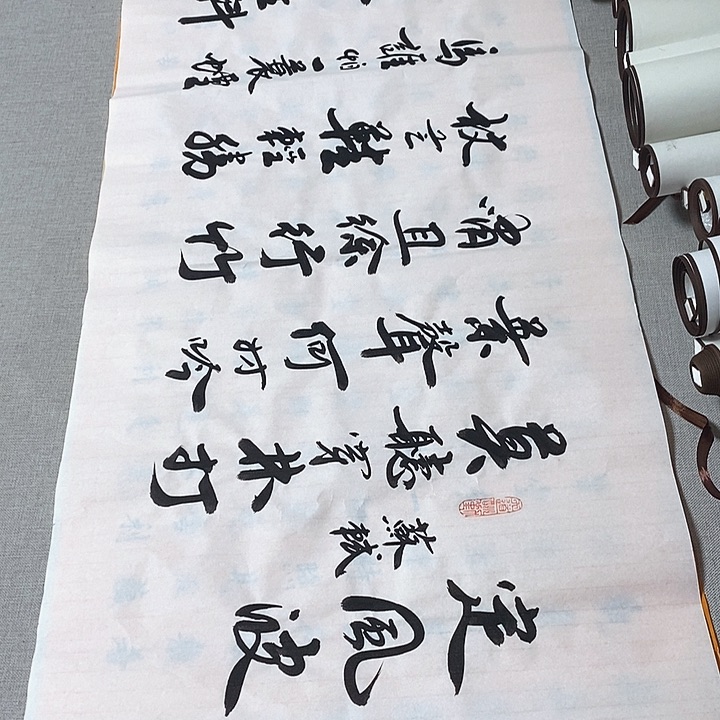 定風波
蘇軾
莫聽穿林打
葉聲何妨吟
嘯且徐行竹
杖芒鞋輕勝
馬誰怕一蓑煙
料